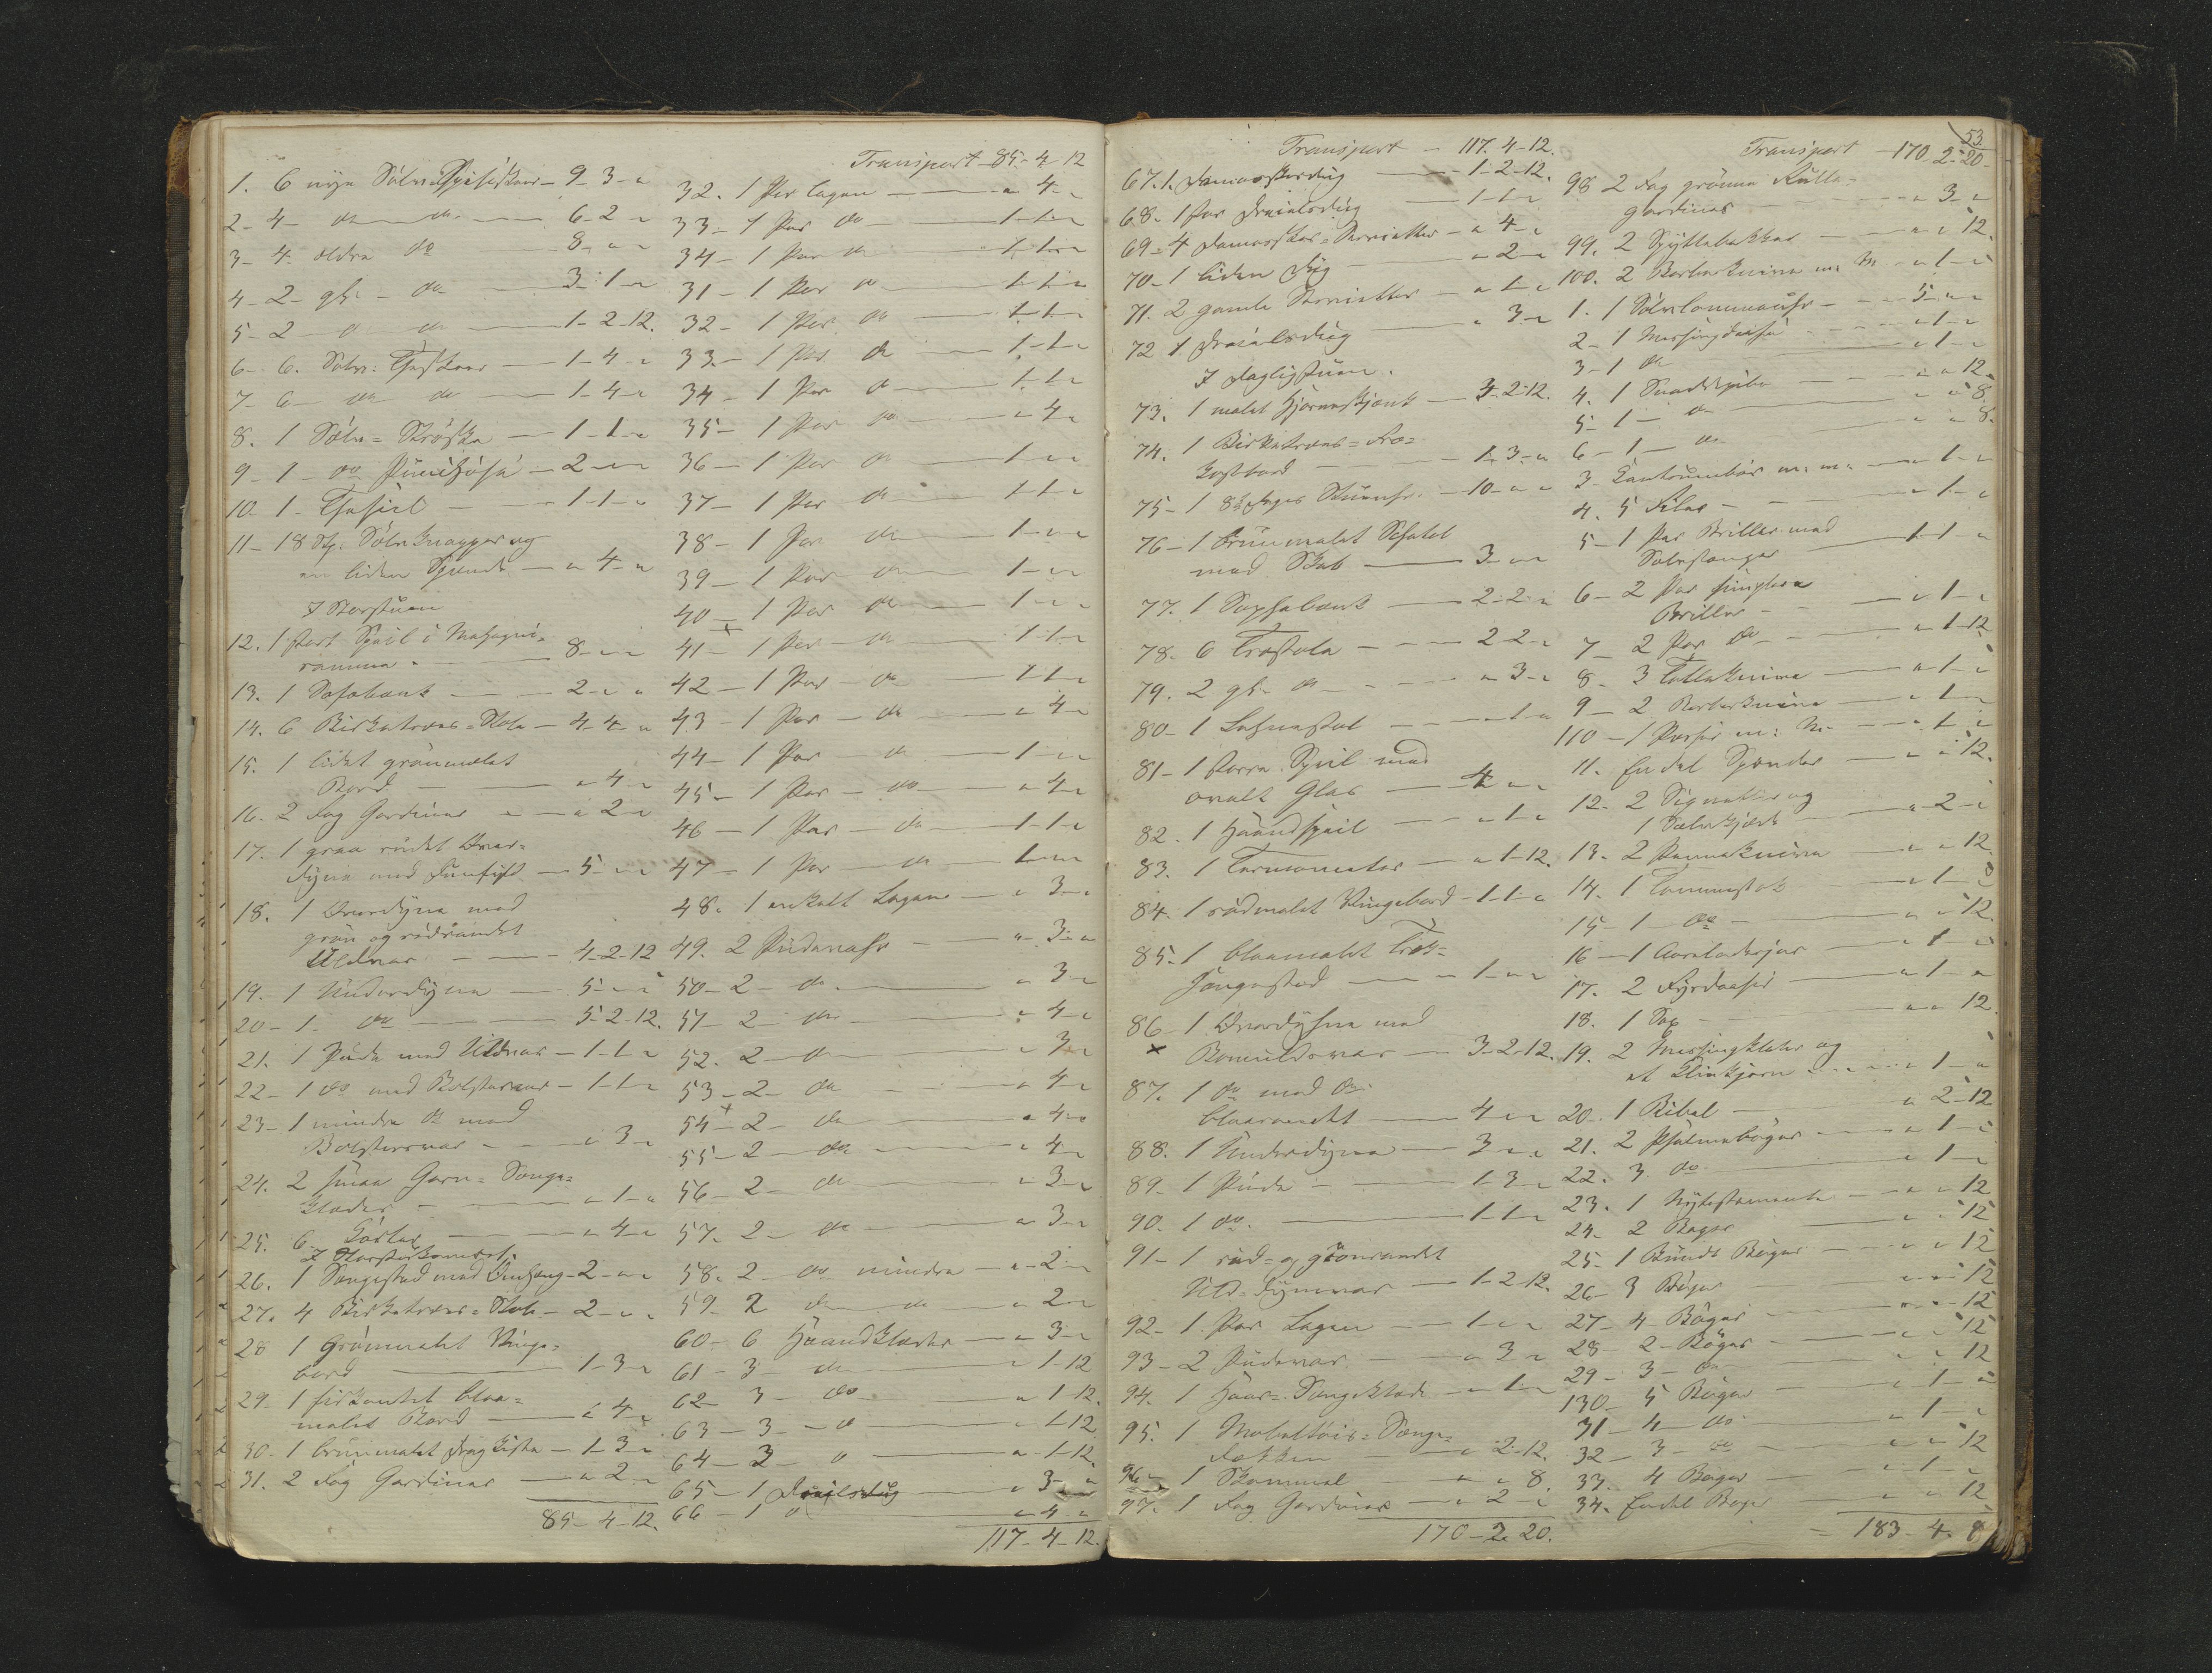 1. 6 nye Sølv Spiseskeer - 9 - 3 - "
2 - 4 - do do - 6 - 2 - "
3 - 4. ældre do 8 - " - "
4 - 2 - gl. - do 3 - 1 - "
5 - 2 do do 1 - 2 - 12.
6 - 6. Sølv: Theskeer - 1 - 4 - "
7 - 6 - do do - 1 - 4 - "
8. 1 Sølv = Strøske - 1 - 1 - "
9 - 1 - do - 2 - " - "
10 - 1 - Thesiel - 1 - 1 - "
11 - 18 St. Sølvknapper og
en liden Spænde - " 4 - "
I Storstuen
12. 1 stort Speil i Mahogni=
ramme - 8 - " - "
13. 1 Sofabænk - 2 - " - "
14. 6 Birketræes = Stole - 4 - 4 - "
15. 1 lidet grønmalet
Bord - " 4 - "
16. 2 Fag Gardiner - " 2 - "
17. 1 graa rudet Over=
dyne med - 5 - " - "
18. 1 Overdyne med
grøn og rødrandet
Uldvar - 4 - 2 - 12
19. 1 Underdyne - 5 - " - "
20 - 1. do - 5 - 2 - 12.
21. 1 Pude med Uldvar - 1 - 1 - "
22 - 1 do med Bolstervar - 1 - 1 - "
23 - 1 mindre do med
Bolstervar - " 3 - "
24. 2 smaa Garn = Senge=
klæder - " 1 - "
25. 6 - " 4 - "
I Storstuekammeret.
26. 1 Sengested med Omhæng - 2 - " - "
27. 4 Birketræes = Stole - 2 - " - "
28 1 Grønmalet Vinge=
bord - 1 - 3 - "
29. 1 firkantet blaa=
malet Bord - " 4 - "
30. 1 brunmalet Dragkiste - 1 - 3 - "
31. 2 Fag Gardiner - " 2 - "
85 - 4 - 12.
Transport - 85 - 4 - 12
32. 1 Par Lagen - " 4 - "
33 - 1 Par do - 1 - 1 - "
34 - 1 Par do 1 - 1 - "
31 - 1 Par do 1 - 1 - "
32 - 1 Par do 1 - 1 - "
33 - 1 Par do - 1 - 1 - "
34 - 1 Par do - 1 - 1 - "
35 - 1 Par do - " 4 - "
36 - 1 Par do - 1 - " - "
37 - 1 Par do - 1 - 1 - "
38 - 1 Par do 1 - " - "
39 - 1 Par do 1 - " - "
40 - 1 Par do 1 - " - "
41 - 1 Par - do 1 - 1 - "
42 - 1 Par - do 1 - 1 - "
43 - 1 Par - do - " 4 - "
44 - 1 Par do - 1 - " - "
45 - 1 Par - do - " 4 - "
46 - 1 Par - do - 1 - 1 - "
47 - 1 Par - do 1 - " - "
48. 1 enkelt Lagen - " 3 - "
49. 2 Pudevahr - " 3 - "
50 - 2 - do - " 3 - "
51 - 2 - do - " 4 - "
52. 2 - do " 3 - "
53 - 2 - do " 4 - "
54 - 2 - do " 4 - "
55 - 2 - do - " 4 - "
56 - 2 - do - " 3 - "
57 - 2 - do - " 3 - "
58. 2 - do mindre - " 2 - "
59. 2 do do " 2 - "
60 - 6 Haandklæder - " 3 - "
61 - 3 - do - " 1 - 12
62 - 3 - do " 1 - 12.
63 - 3 - do " 1 - 12
64 - 3 - do - " 1 - 12.
65 - 1 Dreilsdug " 3 - "
66 - 1 do " 4 - "
117 - 4 - 12.
53
Transport - 117. 4 - 12.
67. 1. Damaskesdug - 1 - 2 - 12.
68. 1 stor Dreielsdug - 1 - 1 - "
69 - 4 Damaskes = Servietter - " 4 - "
70 - 1 liden Dug - " 2 - "
71. 2 gamle Servietter - " 1 - "
72 1 Dreielsdug " 3 - "
I Dagligstuen.
73. 1 malet Hjørneskjænk - 3 - 2 - 12.
74. 1 Birketræes = Fro=
kostbord - 1 - 3 - "
75 - 1 8te Dages Stueuhr. - 10 - " - "
76 - 1 brunmalet Schatol
med Skab - 3 - " - "
77. 1 Sophabænk - 2 - 2 - "
78. 6 Træstole - 2 - 2 - "
79. 2 gl. do - " 3 - "
80 - 1 Lehnestol - " 1 - "
81 - 1 større Speil med
ovalt Glas - 4 - " - "
82. 1 Haandspeil - " 1 - "
83. 1 Termometer - " 1 - 12.
84. 1 rødmalet Vingebord - 1 - 1 - "
85. 1 blaamalet Træk=
sengested - 1 - " - "
86 - 1 Overdyhne med
Bomuldsvar - 3 - 2 - 12.
87. 1 do med do
blaarandet - 4 - " - "
88. 1 Underdyne - 3 - " - "
89. 1 Pude - 1 - 3 - "
90. 1 do. 1 - 1 - "
91 - 1 rød = og grønrandet
Uld = Dynevar - 1 - 2 - 12.
92 - 1 Par Lagen - 1 - " - "
93 - 2 Pudevar - " 3 - "
94. 1 Haar = Sengeklæde - " 1 - "
95. 1 Mobeltøis = Senge=
dækken - " 2 - 12.
96 - 1 Skammel " " 8.
97. 1 Fag Gardiner - " 2 - "
170 - 2 20.
Transport - 170 2 - 20 -
98 2 Fag grønne Rulle=
gardiner - " 3 - "
99. 2 Spyttebakker - " " 12.
100. 2 Barberknive m. M. - " 1 - "
1. 1 Sølvlommeuhr - 5 - " - "
2 - 1 Messingdaase - " 1 - "
3 - 1 do - " 1 - "
4. 1 Snadderpibe - " " 12
5 - 1 - do " " 8.
6 - 1 - do " " 8.
3 m. m. - " 1 - "
4. 5 File - " 1 - "
5 - 1 Par Briller med
Sølvstænger 1 - 1 - "
6 - 2 Par simplere
Briller - " 1 - "
7 - 2 Par do - " 1 - 12
8 - 3 Tolleknive - " 1 - "
9 - 2 Barberknive " 1 - "
110 - 1 m: M. - " 1 - "
11. Endel Spænder - " " 12.
12 - 2 Signetter og
1 Sølvkjæde " 2 - "
13 - 2 Penneknive - " " 12.
14. 1 Tommestok " 1 - "
15 - 1 do - " " 12.
16 - 1 " 1 - "
17. 2 Fyrdaaser " 1 - "
18. 1 Sax - " " 12
19. 2 Messingklokker og
et - " 1 - "
20. 1 Bibel - " 2 - 12
21. 2 Psalmebøger - " 1 - "
22. 3 do " 1 - "
23. 1 Nytestamente - " " 12
24. 2 Bøger " " 12
25 - 1 Bundt Bøger - " " 12
26 - 3 Bøger " " 12
27 - 4 - Bøger - " " 12
28 - 2 - Bøger - " " 12
29 - 3 - do - " " 12
130 - 5 Bøger - " 1 - "
31 - 4 - do - " 1 - "
32 - 3 - do " " 12
33. 4 Bøger - " 1 - "
34. Endel Bøger " " 12
= 183 - 4. 8